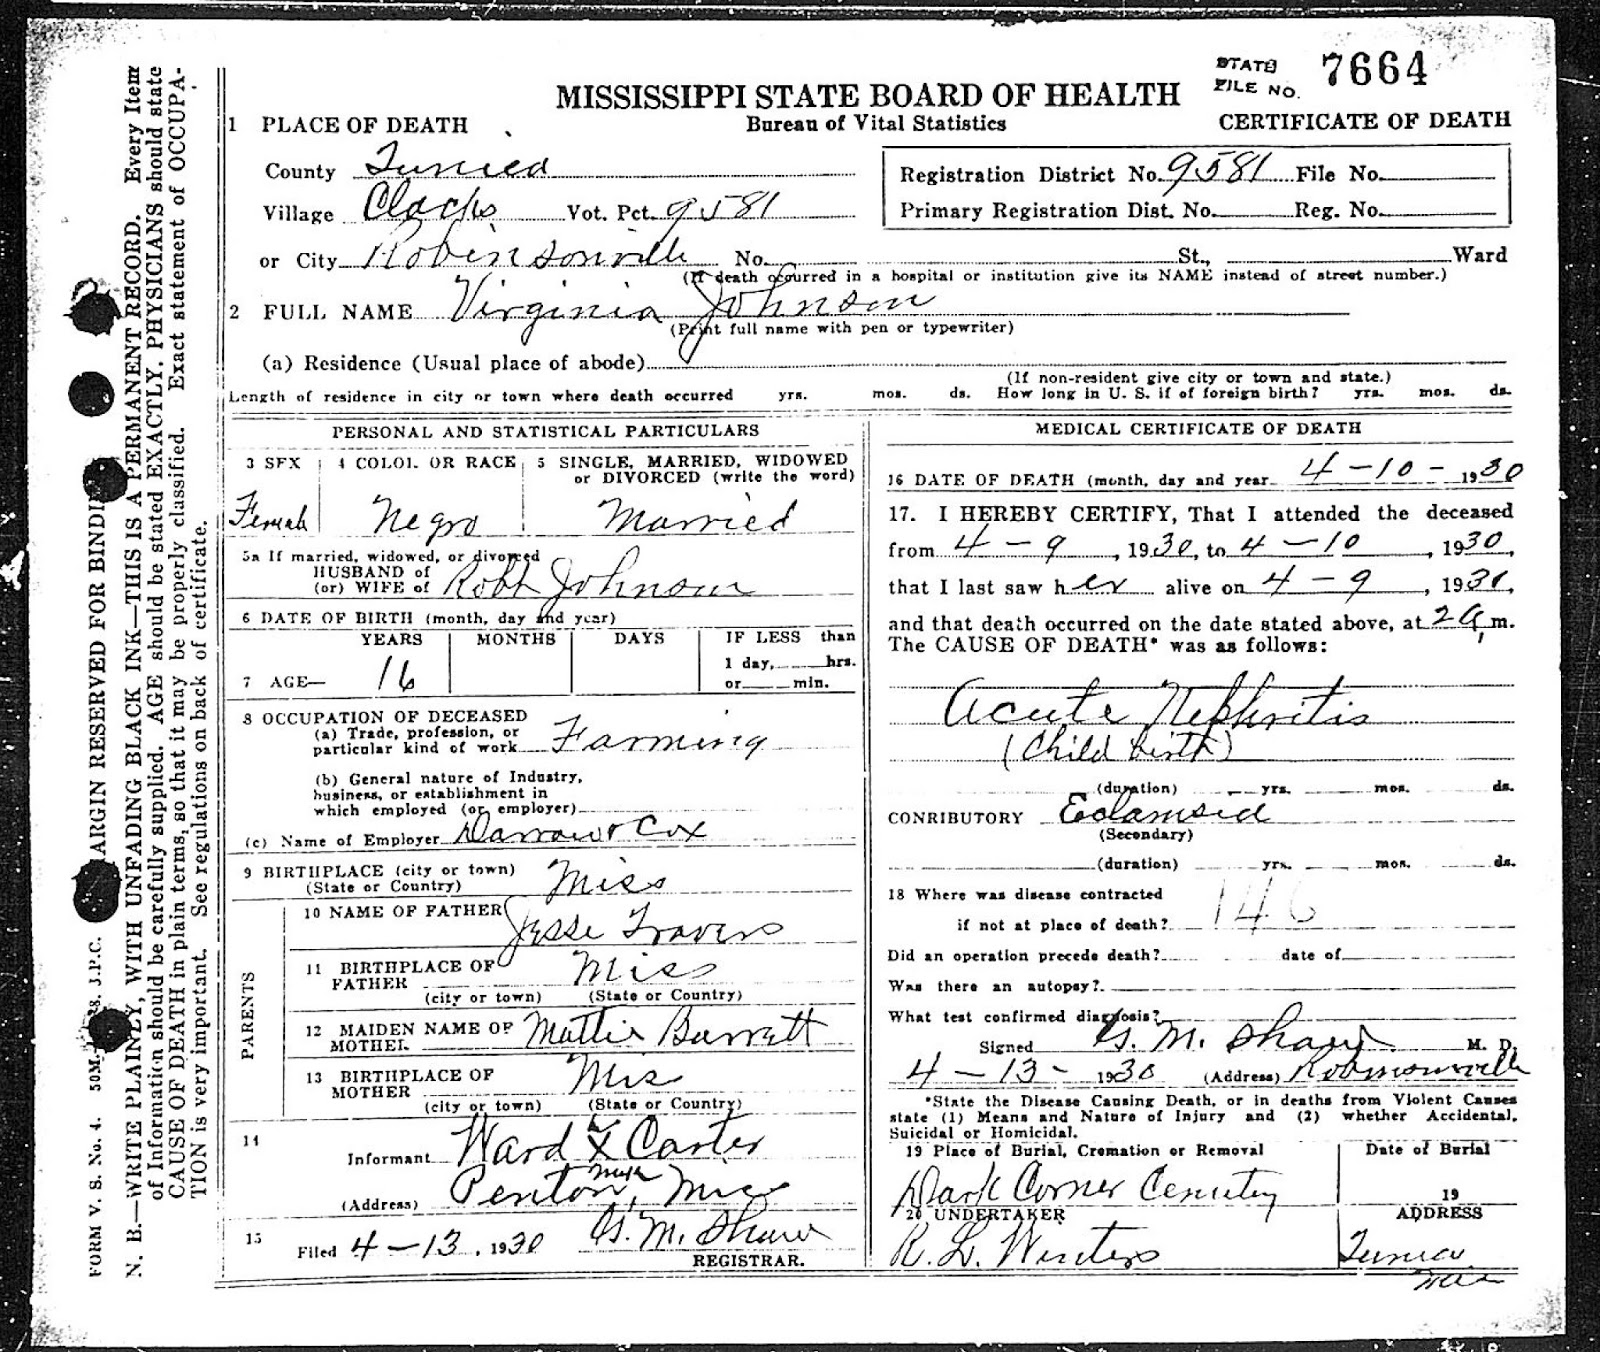 STATE
FILE NO. 7664
MISSISSIPPI STATE BOARD OF HEALTH
Bureau of Vital Statistics
CERTIFICATE OF DEATH
1 PLACE OF DEATH
County Tunica
Village Clacks Vot. Pct. 9581
or City Robinsonville No. St., Ward
(If death occurred in a hospital or institution give its NAME instead of street number.)
Registration District No. 9581 File No.
Primary Registration Dist. No. Reg. No.
2 FULL NAME Virginia Johnson
(Print full name with pen or typewriter)
(a) Residence (Usual place of abode)
(If non-resident give city or town and state.)
Length of residence in city or town where death occurred yrs. mos. ds. How long in U. S. if of foreign birth? yrs. mos. ds.
PERSONAL AND STATISTICAL PARTICULARS
3 SEX 4 COLOR OR RACE 5 SINGLE, MARRIED, WIDOWED
or DIVORCED (write the word)
Female Negro Married
5a If married, widowed, or divorced
HUSBAND of
(or) WIFE of Robt Johnson
6 DATE OF BIRTH (month, day and year)
YEARS MONTHS DAYS IF LESS than
1 day, hrs.
7 AGE— 16 or min.
8 OCCUPATION OF DECEASED
(a) Trade, profession, or
particular kind of work Farming
(b) General nature of Industry,
business, or establishment in
which employed (or employer)
(c) Name of Employer Darrow & Cox
9 BIRTHPLACE (city or town)
(State or Country) Miss
PARENTS
10 NAME OF FATHER Jesse Travers
11 BIRTHPLACE OF
FATHER Miss
(city or town) (State or Country)
12 MAIDEN NAME OF
MOTHER Mattie Barrett
13 BIRTHPLACE OF
MOTHER Mis
(city or town) (State or Country)
14
Informant Ward X Carter
(Address) Penton, Miss
15 Filed 4-13, 1930 G. M. Shaw
REGISTRAR.
MEDICAL CERTIFICATE OF DEATH
16 DATE OF DEATH (month, day and year 4-10- 1930
17. I HEREBY CERTIFY, That I attended the deceased
from 4-9, 1930, to 4-10, 1930,
that I last saw her alive on 4-9, 1930,
and that death occurred on the date stated above, at 2 a, m.
The CAUSE OF DEATH* was as follows:
Acute Nephritis
(Child birth)
(duration) yrs. mos. ds.
CONRIBUTORY Eclamsia
(Secondary)
(duration) yrs. mos. ds.
18 Where was disease contracted
if not at place of death? 146
Did an operation precede death? date of
Was there an autopsy?
What test confirmed diagnosis?
Signed G. M. Shaw M. D.
4-13- 1930 (Address) Robinsonville
*State the Disease Causing Death, or in deaths from Violent Causes
state (1) Means and Nature of Injury and (2) whether Accidental,
Suicidal or Homicidal.
19 Place of Burial, Cremation or Removal Date of Burial
Dark Corner Cemetery 19
20 UNDERTAKER ADDRESS
R. L. Winters Tunica
Miss
MARGIN RESERVED FOR BINDI
FORM V. S. No. 4. 50M- 28. J.P.C.
N. B.—WRITE PLAINLY, WITH UNFADING BLACK INK—THIS IS A PERMANENT RECORD. Every Item
of Information should be carefully supplied. AGE should be stated EXACTLY. PHYSICIANS should state
CAUSE OF DEATH in plain terms, so that it may be properly classified. Exact statement of OCCUPA-
TION is very important. See regulations on back of certificate.